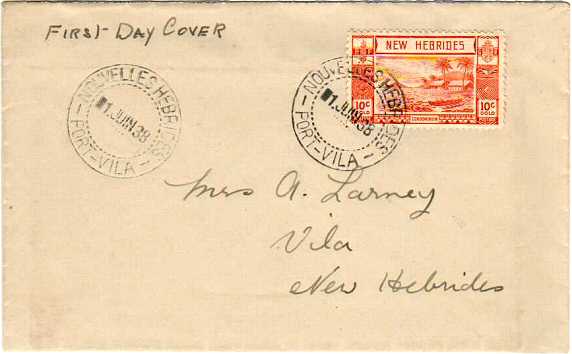 FIRST-DAY COVER
NEW HEBRIDES
10c
GOLD
CONDOMINIUM
10c
GOLD
NOUVELLES HEBRIDES
1 JUIN 38
PORT-VILA
NOUVELLES HEBRIDES
1 JUIN 38
PORT-VILA
Mrs A. Larney
Vila
New Hebrides